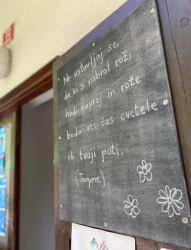 Ne ustavljaj se,
da bi si nabral rož,
hodi naprej in rože
bodo ves čas cvetele
ob tvoji poti.
(Tagore)